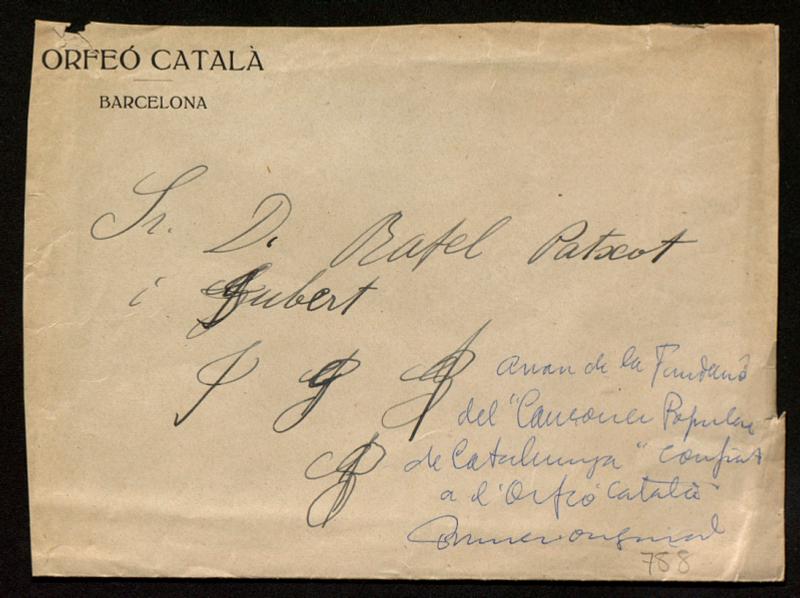 ORFEÓ CATALÀ
BARCELONA
Sr. D. Rafel Patxot
i Jubert
de la Fundació
del "Cançoner Popular
de Catalunya" confiat
a l'Orfeó Català
original
788